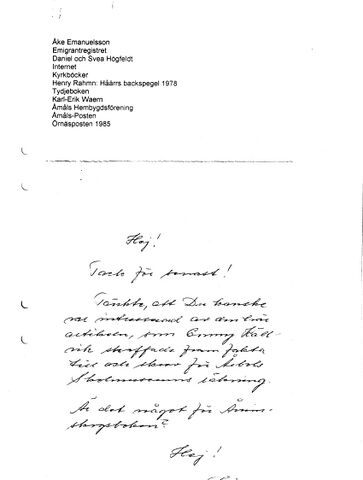 Åke Emanuelsson
Emigrantregistret
Daniel och Svea Högfeldt
Internet
Kyrkböcker
Henry Rahmn: Håårrs backspegel 1978
Tydjeboken
Karl-Erik Waern
Åmåls Hembygdsförening
Åmåls-Posten
Örnäsposten 1985
Hej!
Tack för senast!
Tänkte, att Du kanske
var intresserad av den här
artikeln, som Emmy Häll-
vik skaffade fram fakta
till och skrev för
Skolmuseums räkning.
Är det något för
boken?
Hej!